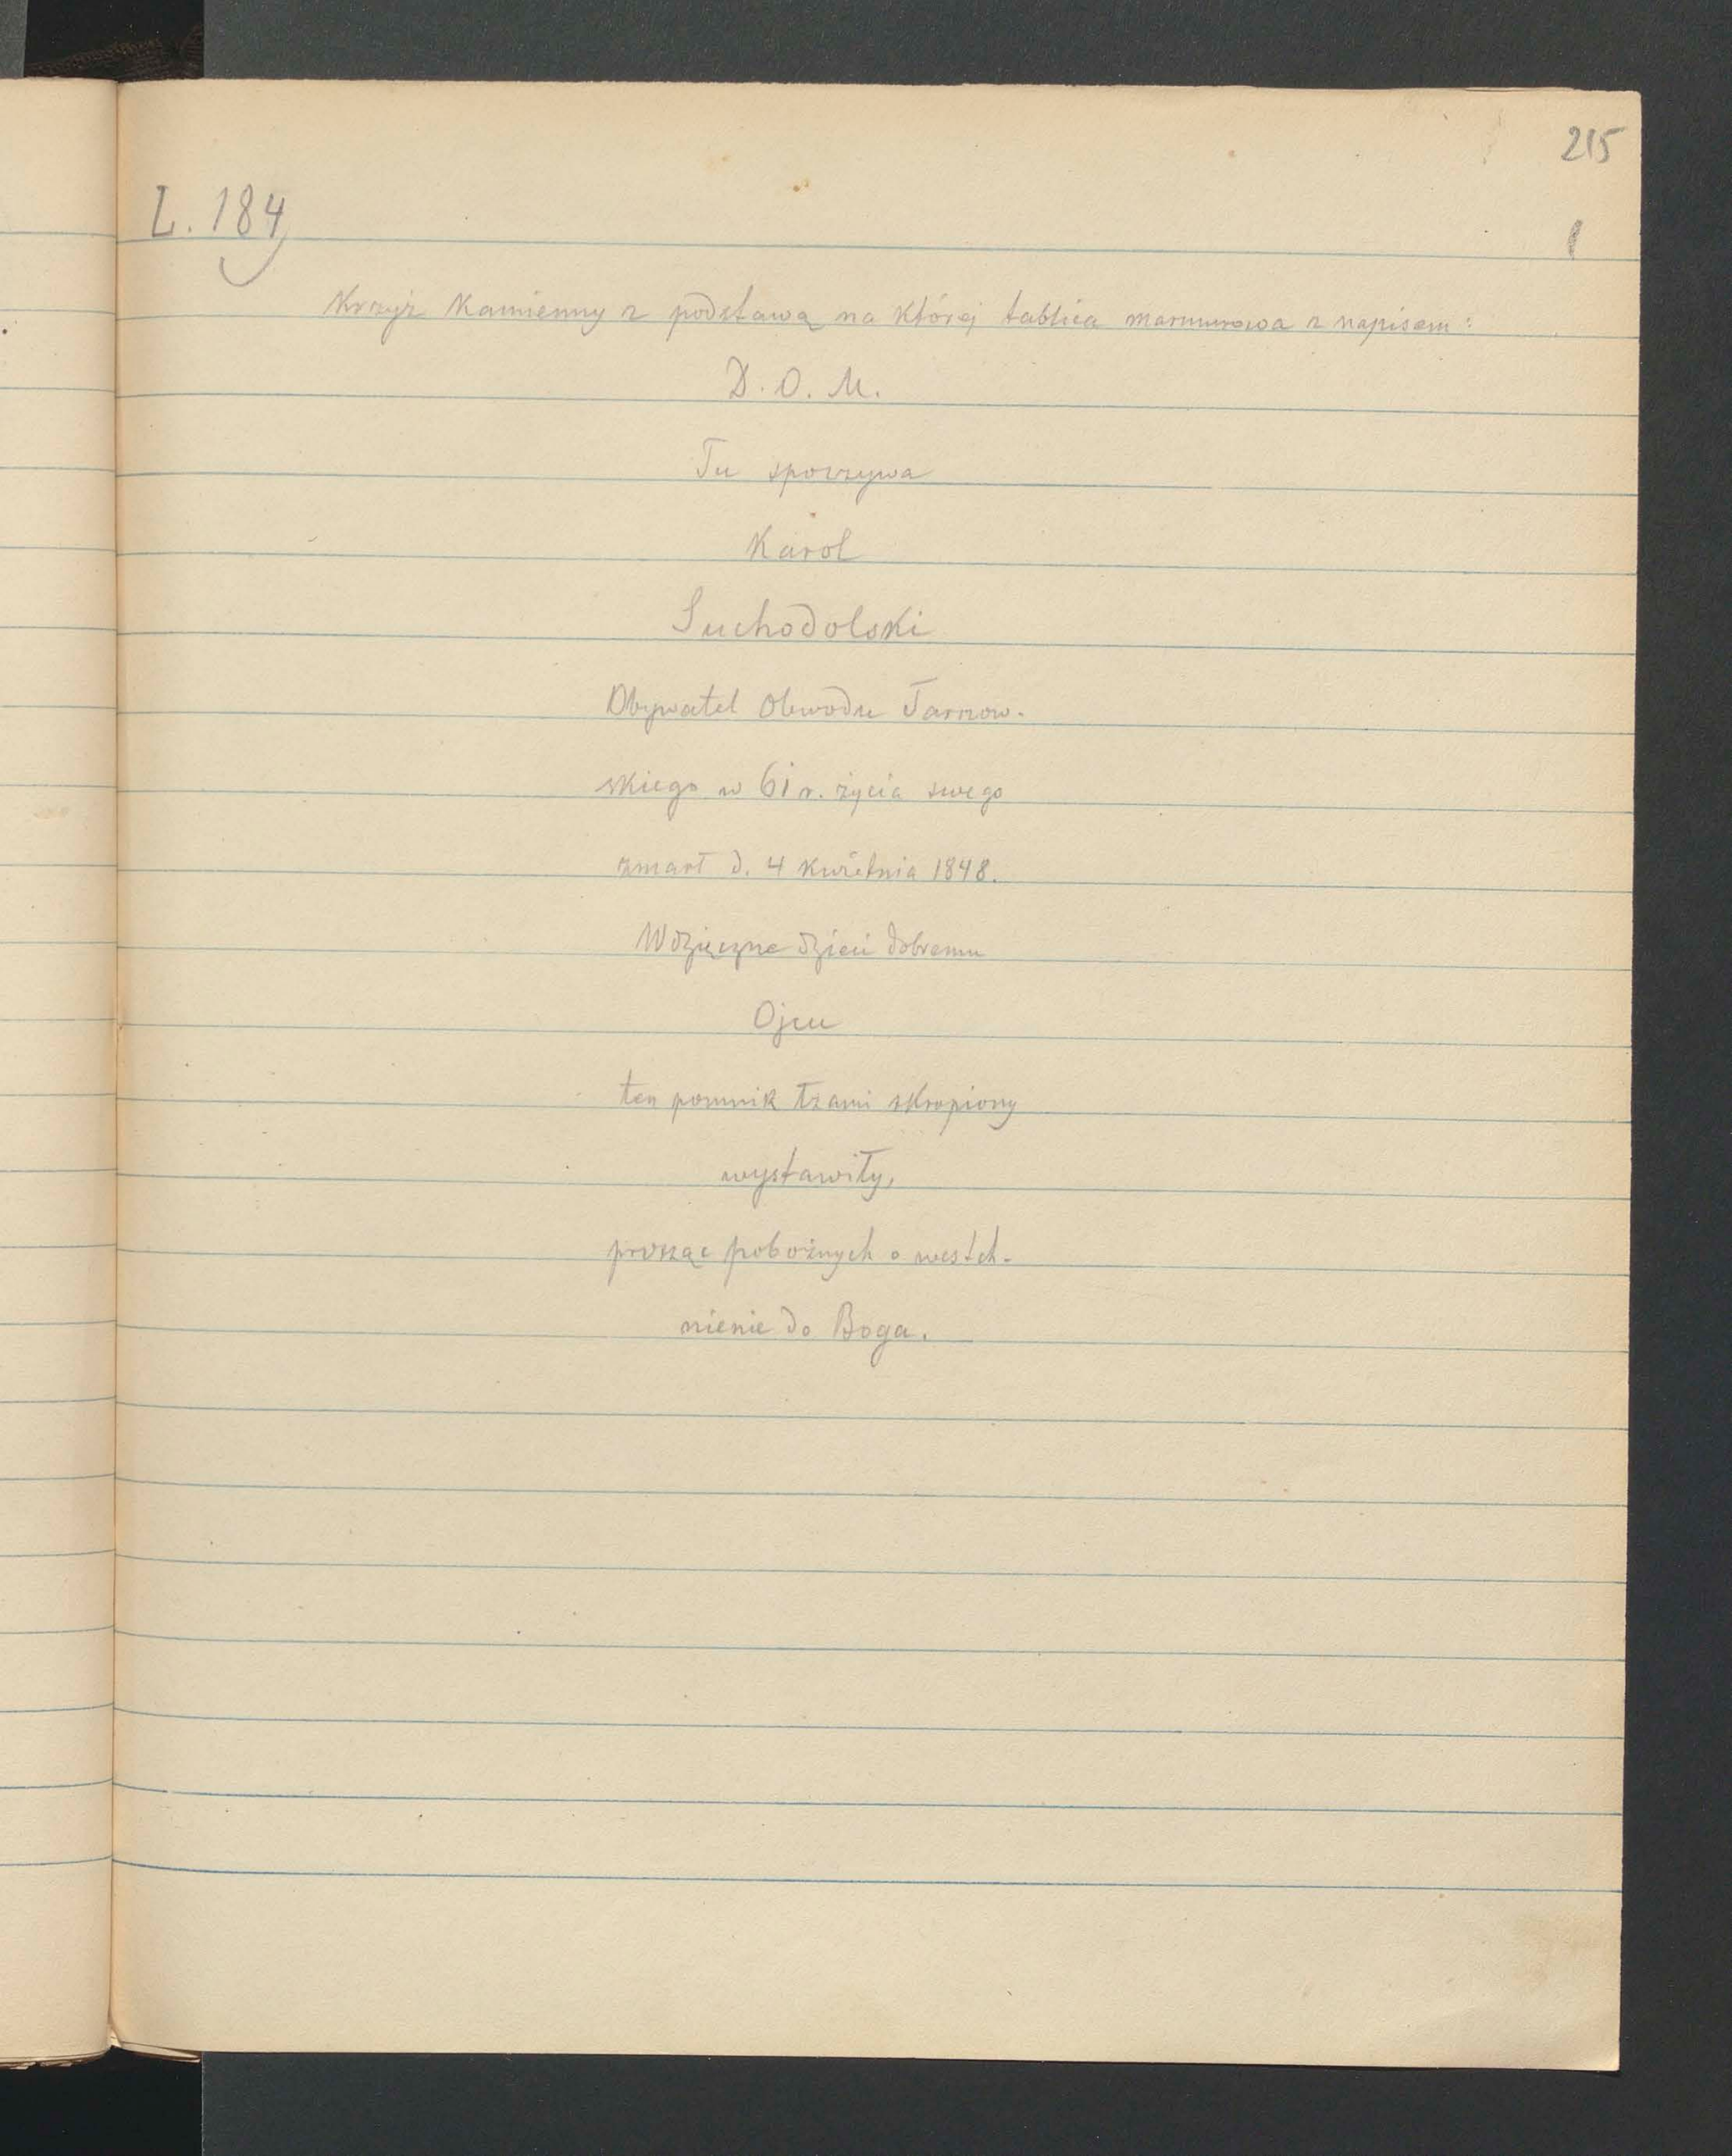 215
L. 184
1
Krzyż Kamienny z podstawą na której tablica marmurowa z napisem:
D. O. M.
Tu spoczywa
Karol
Suchodolski
Obywatel Obwodu Tarnow-
skiego w 61 r. życia swego
zmarł d. 4 kwietnia 1848.
Wdzięczne dzieci dobremu
Ojcu
ten pomnik łzami skropiony
wystawiły,
prosząc pobożnych o westch-
nienie do Boga.